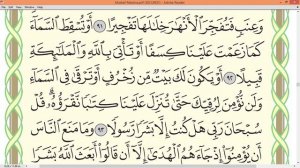 وَعِنَبٍ فَتُفَجِّرَ ٱلْأَنْهَٰرَ خِلَٰلَهَا تَفْجِيرًا ٩١ أَوْ تُسْقِطَ ٱلسَّمَآءَ
كَمَا زَعَمْتَ عَلَيْنَا كِسَفًا أَوْ تَأْتِىَ بِٱللَّهِ وَٱلْمَلَٰٓئِكَةِ
قَبِيلًا ٩٢ أَوْ يَكُونَ لَكَ بَيْتٌ مِّن زُخْرُفٍ أَوْ تَرْقَىٰ فِى ٱلسَّمَآءِ
وَلَن نُّؤْمِنَ لِرُقِيِّكَ حَتَّىٰ تُنَزِّلَ عَلَيْنَا كِتَٰبًا نَّقْرَؤُهُۥ ۗ قُلْ
سُبْحَانَ رَبِّى هَلْ كُنتُ إِلَّا بَشَرًا رَّسُولًا ٩٣ وَمَا مَنَعَ ٱلنَّاسَ
أَن يُؤْمِنُوٓا۟ إِذْ جَآءَهُمُ ٱلْهُدَىٰٓ إِلَّآ أَن قَالُوٓا۟ أَبَعَثَ ٱللَّهُ بَشَرًا